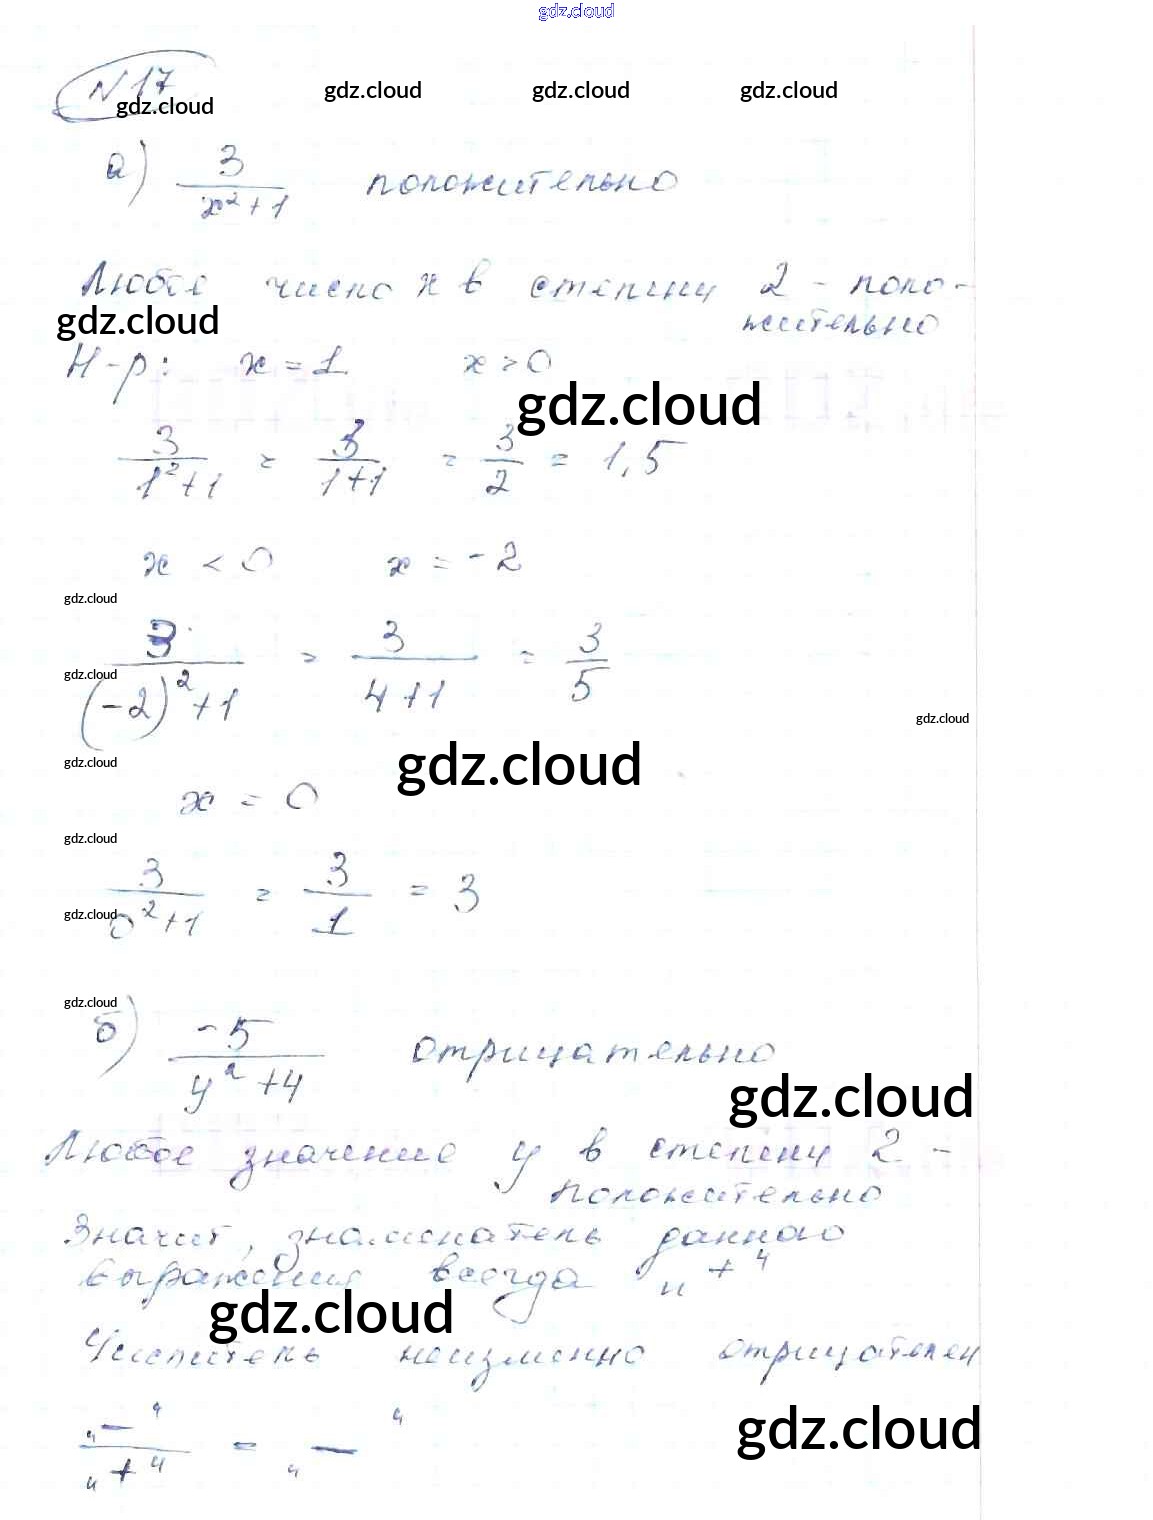 gdz.cloud
N 17
gdz.cloud gdz.cloud gdz.cloud gdz.cloud
а) 3/(x²+1) положительно
Любое число x в степени 2 - поло-
жительно
gdz.cloud
Н-р: x = 1 x > 0
gdz.cloud
3/(1²+1) = 3/(1+1) = 3/2 = 1,5
x < 0 x = -2
gdz.cloud
3/((-2)²+1) = 3/(4+1) = 3/5
gdz.cloud
gdz.cloud
gdz.cloud
gdz.cloud
x = 0
gdz.cloud
3/(0²+1) = 3/1 = 3
gdz.cloud
gdz.cloud
б) -5/(y²+4) отрицательно
gdz.cloud
Любое значение y в степени 2 -
положительно
Значит, знаменатель данного
выражения всегда "+"
gdz.cloud
Числитель неизменно отрицателен
"-"/"+" = "-"
gdz.cloud